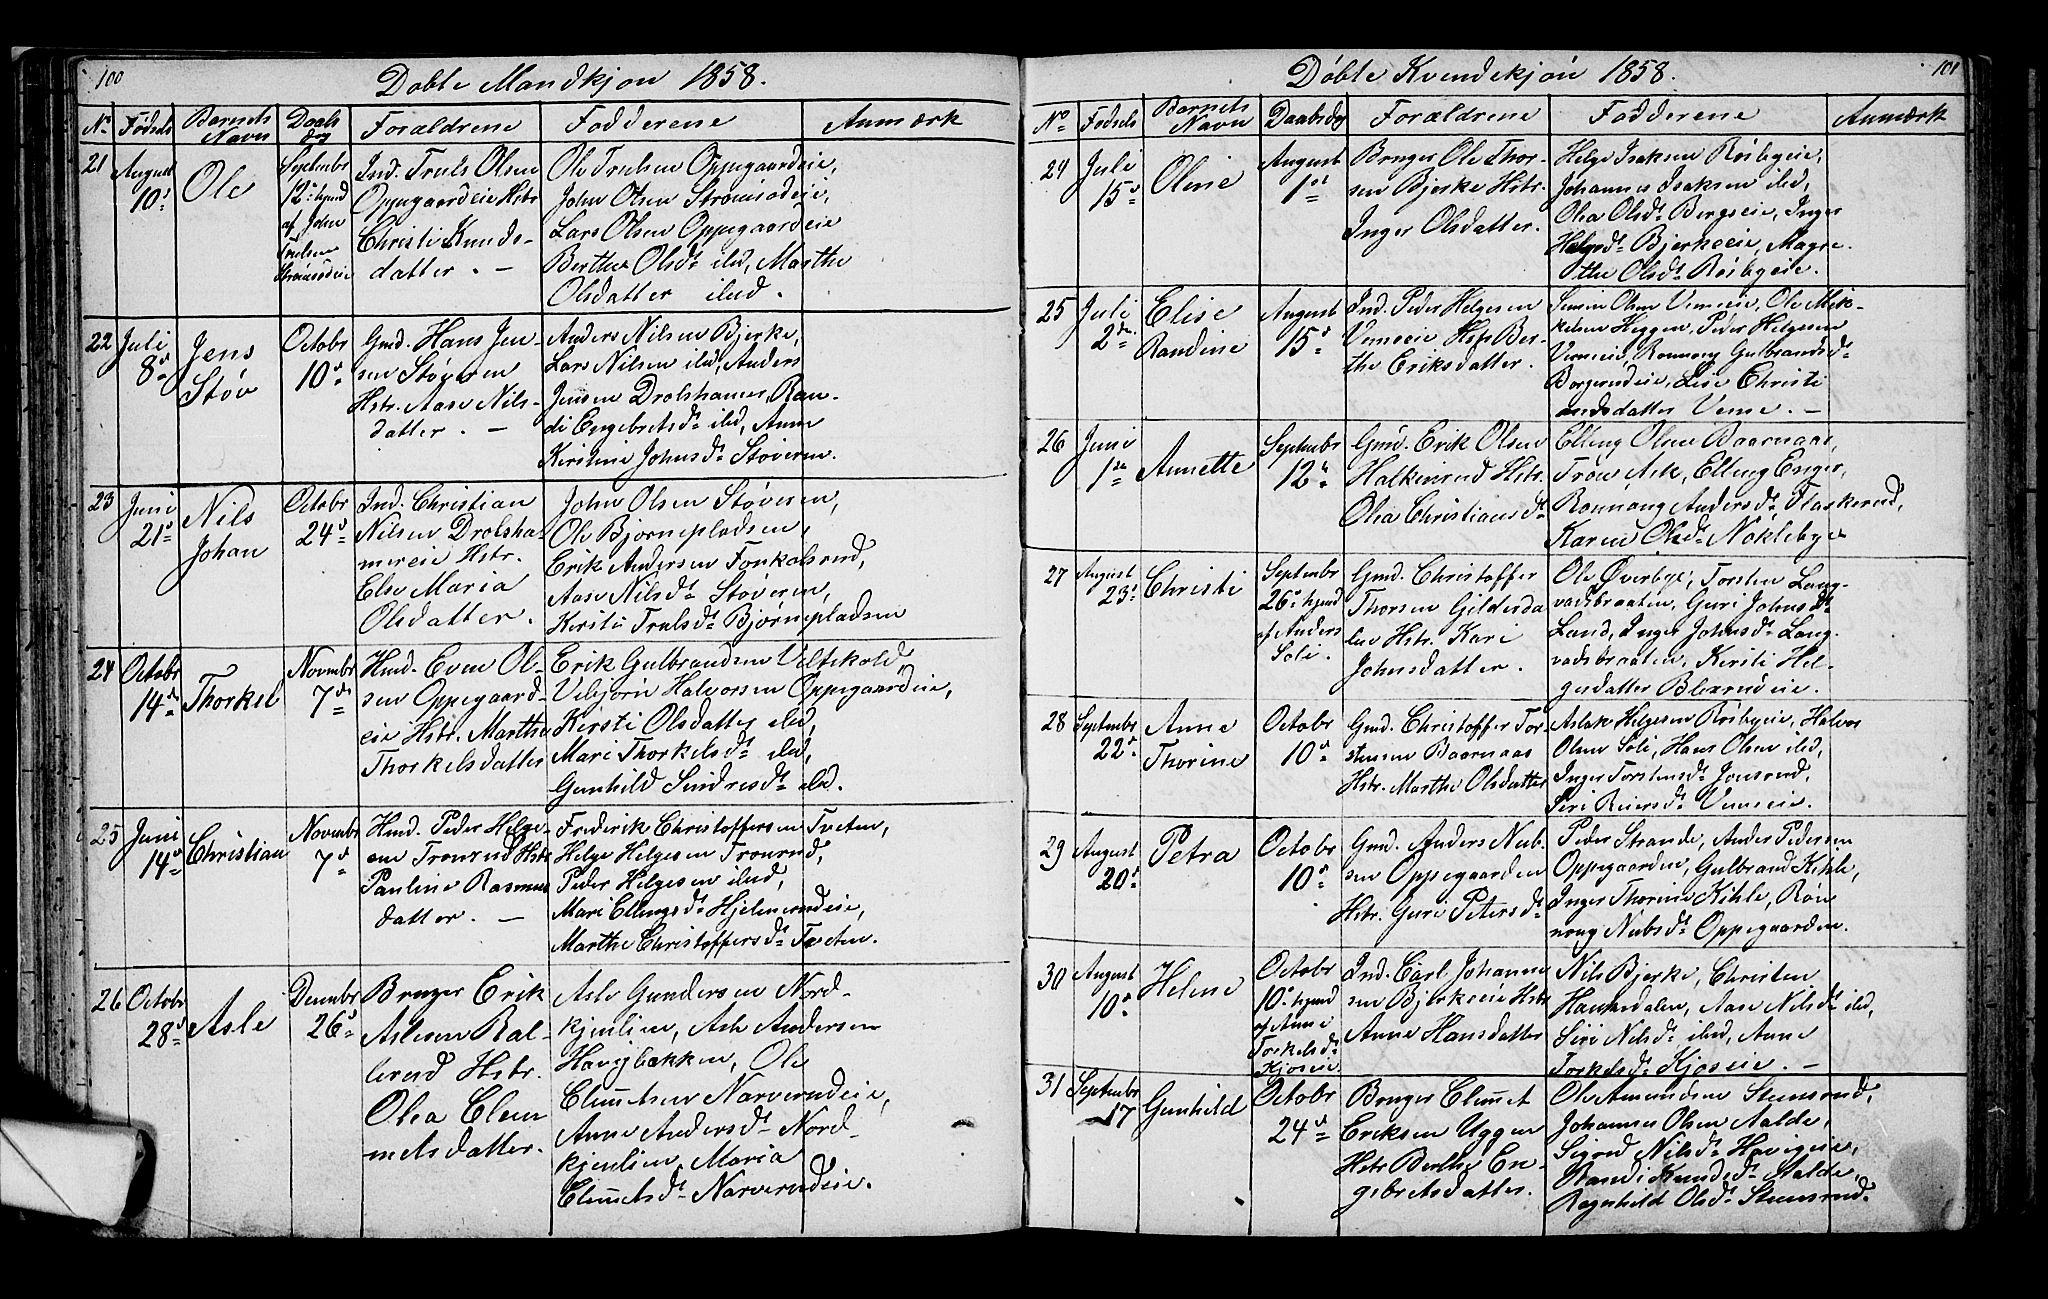 100
Døbte Mandkjøn 1858.
No Fødsels Barnets Navn Daabs dag Forældrene Fadderene Anmærk
21 August 10d Ole
Septembr 12te hjemd af John Trulsen Strømsødeie
Ind. Truls Olsen
Oppegaardeie Hstr
Christi Knuds-
datter. —
Ole Trulsen Oppegaardeie,
John Olsen Strømsødeie,
Lars Olsen Oppegaardeie
Berthe Olsdt. ibd, Marthe
Olsdatter ibid.
22 Juli 8d Jens Støv
Octobr 10d
Gmd. Hans Jen-
sen Støveren
Hstr. Aase Nils-
datter. —
Anders Nilsen Bjerke,
Lars Nilsen ibd, Anders
Jensen Drolshamer, Ran-
di Engebretsdt. ibd, Anne
Kirstine Johnsdt. Støveren.
23 Juni 21d Nils Johan
Octobr 24d
Ind. Christian
Nilsen Drolsha-
mereie Hstr.
Else Maria
Olsdatter.
John Olsen Støveren,
Ole Bjørnepladsen,
Erik Andersen Fonkalsrud,
Aase Nilsdt. Støveren,
Kirsti Trulsdt. Bjørnepladsen
24 Octobr 14de Thorkel
Novembr 7de
Hmd. Even Ol-
sen Oppegaard-
eie Hstr. Marthe
Thorkelsdatter
Erik Gulbrandsen Veltskold,
Vebjørn Halvorsen Oppegaardeie,
Kirsti Olsdatter ibd,
Mari Thorkelsdt. ibd,
Gunhild Sindresdt. ibd.
25 Juni 14d Christian
Novembr 7d
Hmd. Peder Helge-
sen Tronrud Hstr
Pauline Rasmus
datter. —
Frederik Christoffersen Tveten,
Helge Helgesen Tronrud,
Peder Helgesen ibid,
Mari Ellingsdt. Hjelmerudeie,
Marthe Christoffersdt. Tveten.
26 Octobr 28d Asle
Decembr 26d
Bruger Erik
Aslesen Ral-
lerud Hstr.
Olea Clem
metsdatter.
Asle Gundersen Nord-
kjenlien, Asle Andersen
Havigbakken, Ole
Clemetsen Narverudeie,
Anne Andersdt. Nord-
kjenlien Maria
Clemetsdt. Narverudeie.
101
Døbte Kvindekjøn 1858.
No Fødsels Barnets Navn Daabsdg Forældrene Fadderene Anmærk
24 Juli 15d Oline
August 1st
Bruger Ole Thor-
sen Bjerke Hstr.
Inger Olsdatter.
Helge Isaksen Røsbyeie,
Johannes Isaksen ibd,
Olea Olsdt. Bergseie, Inger
Helgesdt. Bjerkeeie, Magre-
the Olsdt. Røsbyeie.
25 Juli 2den Elise Randine
August 15d
Ind. Peder Helgesen
Vemeeie Hsp Ber-
the Eriksdatter.
Simen Olsen Vemeeie, Ole Mik-
kelsen Heggen, Peder Helgesen
Vemeeie, Rønnoug Gulbrandsdt.
Borgerudeie, Lise Christi
ansdatter Veme. —
26 Juni 1ste Annette
Septembr 12te
Gmd. Erik Olsen
Halkinrud Hstr.
Olea Christiansdt.
Elling Olsen Baarnaas,
Tron Ask, Elling Enger,
Rønnoug Andersdt. Flaskerud,
Karen Olsdt. Nøklebye
27 August 23d Christi
Septembr 26d hjemd af Anders Soli.
Gmd. Christoffer
Thorsen Gilderda
len Hstr. Kari
Johnsdatter.
Ole Øverbye, Torsten Lang-
vadsbraaten, Guri Johnsdt.
Lund, Inger Johnsdt. Lang-
vadsbraaten, Kirsti Hel-
gesdatter Blexrudeie.
28 Septembr 22d Anne Thorine
Octobr 10d
Gmd. Christoffer Tor-
stensen Baarnaas
Hstr. Marthe Olsdatter
Aslak Helgesen Røsbyeie, Halvor
Olsen Soli, Hans Olsen ibd,
Inger Torstensdt. Jonsrud,
Siri Reiersdt. Vemeeie.
29 August 20d Petra
Octobr 10d
Gmd. Anders Nub-
sen Oppegaarden
Hstr. Guri Petersdt.
Peder Strande, Anders Pedersen
Oppegaarden, Gulbrand Kihle,
Inger Thorine Kihle, Røn
noug Nubsdt. Oppegaarden.
30 August 10d Helene
Octobr 10d hjemd af Anne Torkelsdt. Kjoseie
Ind. Carl Johanne
sen Bjerkeeie Hstr
Anne Hansdatter
Nils Bjerke, Christen
Hamsedalen, Aase Nilsdt. ibd,
Siri Nilsdt. ibd, Anne
Torkelsdt. Kjoseie. —
31 Septembr 17 Gunhild
Octobr 24d
Bruger Clemet
Eriksen Uggen
Hstr Berthe En-
gebretsdatter.
Ole Amundsen Stensrud,
Johannes Olsen Aalde,
Sigrid Nilsdt. Havigeie,
Randi Knudsdt. Aalde,
Ragnhild Olsdt. Stensrud.